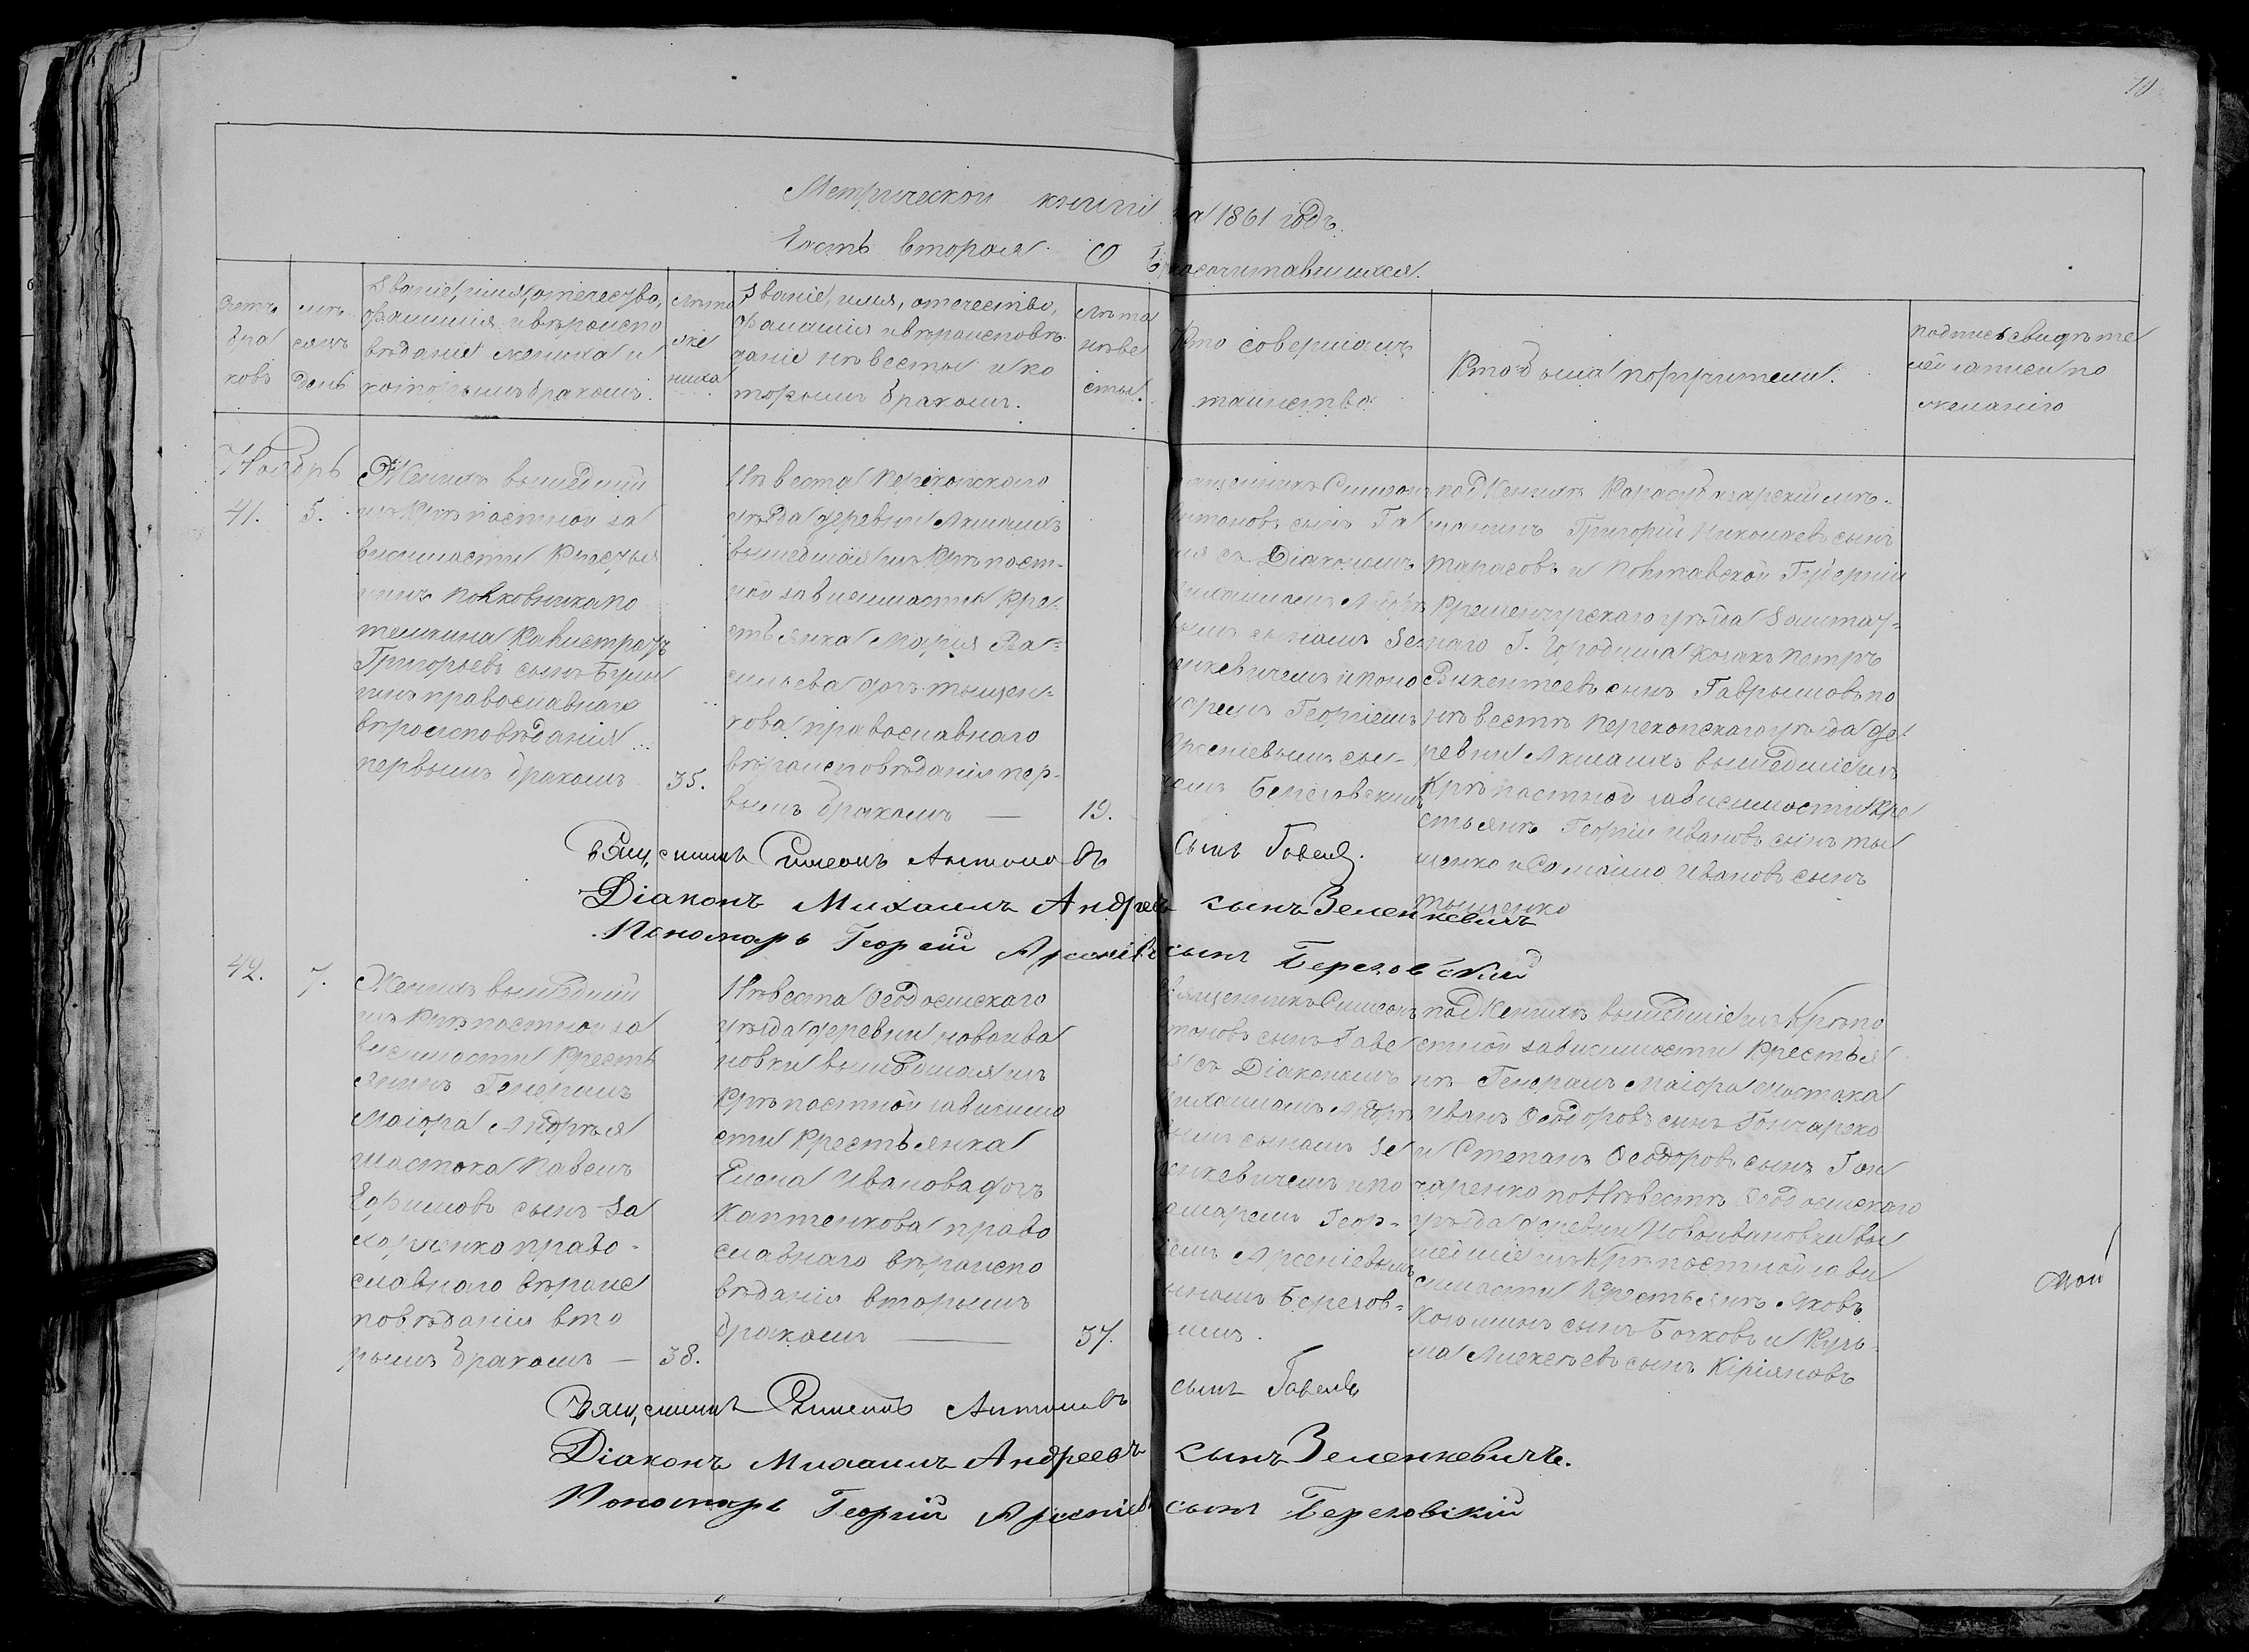 Метрической книги на 1861 годъ.
Часть вторая. О бракосочитавшихся.
Счетъ браковъ
мѣсяцъ день
Званіе, имя, отечество,
фамилія и вѣроиспо
вѣданіе жениха и
которымъ бракомъ.
Лѣта
же
ниха
Званіе, имя, отечество,
Фамилія и вѣроисповѣ
даніе невѣсты и ко
торымъ бракомъ.
Лѣта
невѣ
сты.
Кто совершалъ
таинство
Кто были поручители.
подпись свидѣте
лей записи по
желанію
Ноябрь
41. 5.
Женихъ вышедшій
изъ Крѣпостной за
висимости Крестья
нинъ Полковника По
темкина Калистратъ
Григорьевъ сынъ
православнаго
вѣроисповѣданія
первымъ бракомъ
35.
Невѣста Перекопскаго
уѣзда деревни
вышедшая изъ Крѣпост-
ной зависимости Кре-
стьянка Марія Ва-
сильева дочь Тыщен-
кова православнаго
вѣроисповѣданія пер-
вымъ бракомъ —
19.
Священникъ Симеонъ
Антоновъ сынъ Га
съ Діакономъ
Михаиломъ Андрѣе
вымъ сыномъ Зе
ленкевичемъ и поно
маремъ Георгіемъ
Арсеніевымъ сы-
номъ Березовскимъ
по Женихѣ Карасубазарскій мѣ-
щанинъ Григорій Николаевъ сынъ
Тарасовъ и Полтавской Губерніи
Кременчугскаго уѣзда Заштат-
наго Г. Городища козакъ Петръ
Викентеевъ сынъ Гавриловъ по
невѣстѣ Перекопскаго уѣзда де
ревни вышедшіе изъ
Крѣпостной зависимости Кре
стьянѣ Георгій Ивановъ сынъ Ты
щенко и Самойло Ивановъ сынъ
Тыщенко
Священникъ Симеонъ Антоновъ сынъ
Діаконъ Михаилъ Андреевъ сынъ Зеленкевичъ
Пономарь Георгій Арсеніевъ сынъ Березовскій
42. 7.
Женихъ вышедшій
изъ Крѣпостной за
висимости Кресть
янинъ Генералъ
Маіора Андрѣя
Шостака Павелъ
Ефимовъ сынъ За
харченко право-
славнаго вѣроис
повѣданія вто
рымъ бракомъ —
38.
Невѣста Ѳеодосійскаго
уѣзда деревни Новоива
новки вышедшая изъ
Крѣпостной зависимо
сти Крестьянка
Елена Иванова дочь
Каптенкова право
славнаго вѣроиспо
вѣданія вторымъ
бракомъ —
37.
Священникъ Симеонъ
Антоновъ сынъ Гаве
съ Діакономъ
Михаиломъ Андрѣ
евымъ сыномъ Зе
ленкевичемъ и по
номаремъ Геор-
гіемъ Арсеніевымъ
сыномъ Березов-
скимъ.
по Женихѣ вышедшіе изъ Крѣпо
стной зависимости Крестья
нѣ Генералъ Маіора Шостака
Иванъ Ѳеодоровъ сынъ Гончаренко
и Степанъ Ѳеодоровъ сынъ Гон
чаренко по Невѣстѣ Ѳеодосійскаго
уѣзда деревни Новоивановки вы
шедшіе изъ Крѣпостной зави
симости Крестьянѣ Яковъ
сынъ Бочковъ и Кузь-
ма Алексѣевъ сынъ Кіріяновъ
Священникъ Симеонъ Антоновъ сынъ
Діаконъ Михаилъ Андреевъ сынъ Зеленкевичъ.
Пономарь Георгій Арсеніевъ сынъ Березовскій